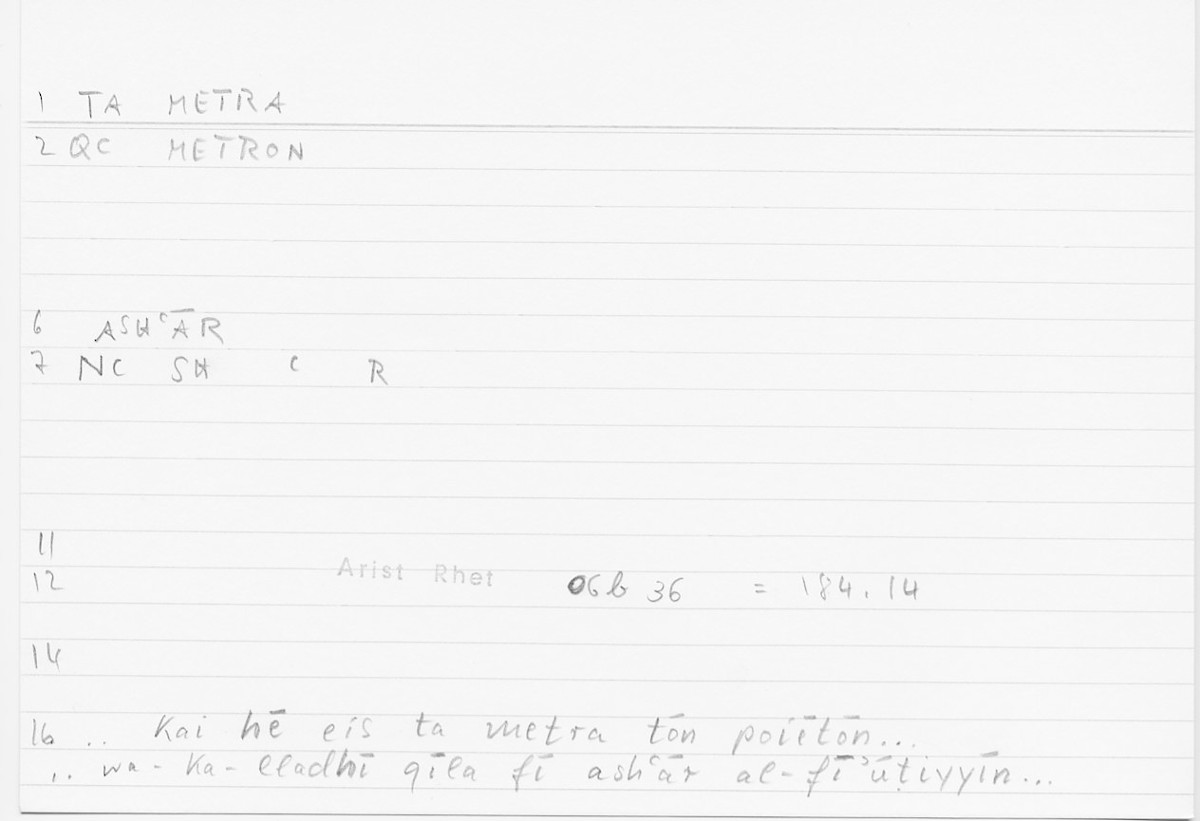 1 TA METRA
2 QC METRON
6 ASHʿĀR
7 NC SH ʿ R
11
12 Arist Rhet 06b 36 = 184.14
14
16 .. kai hē eis ta metra tōn poiētōn...
... wa-ka-lladhī qīla fī ashʿār al-fīʾūṭiyyīn...